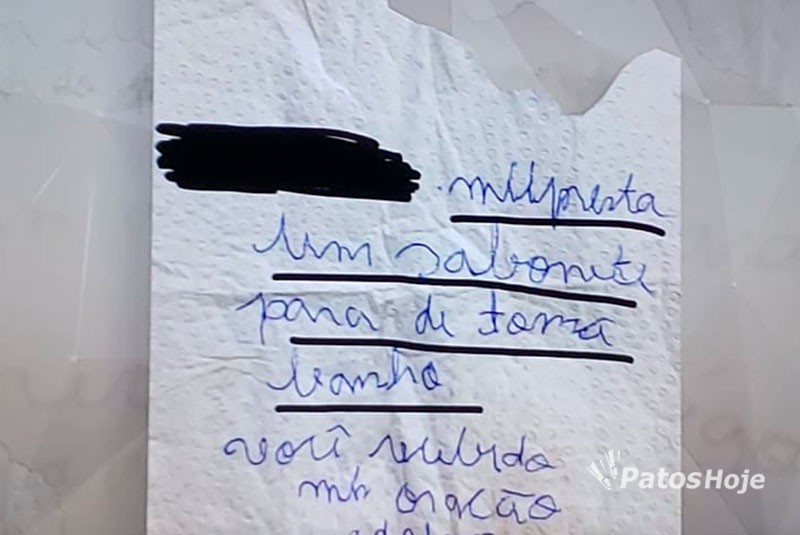 mllpresta
um sabonete
para de toma
banho
você
mh oração
PatosHoje